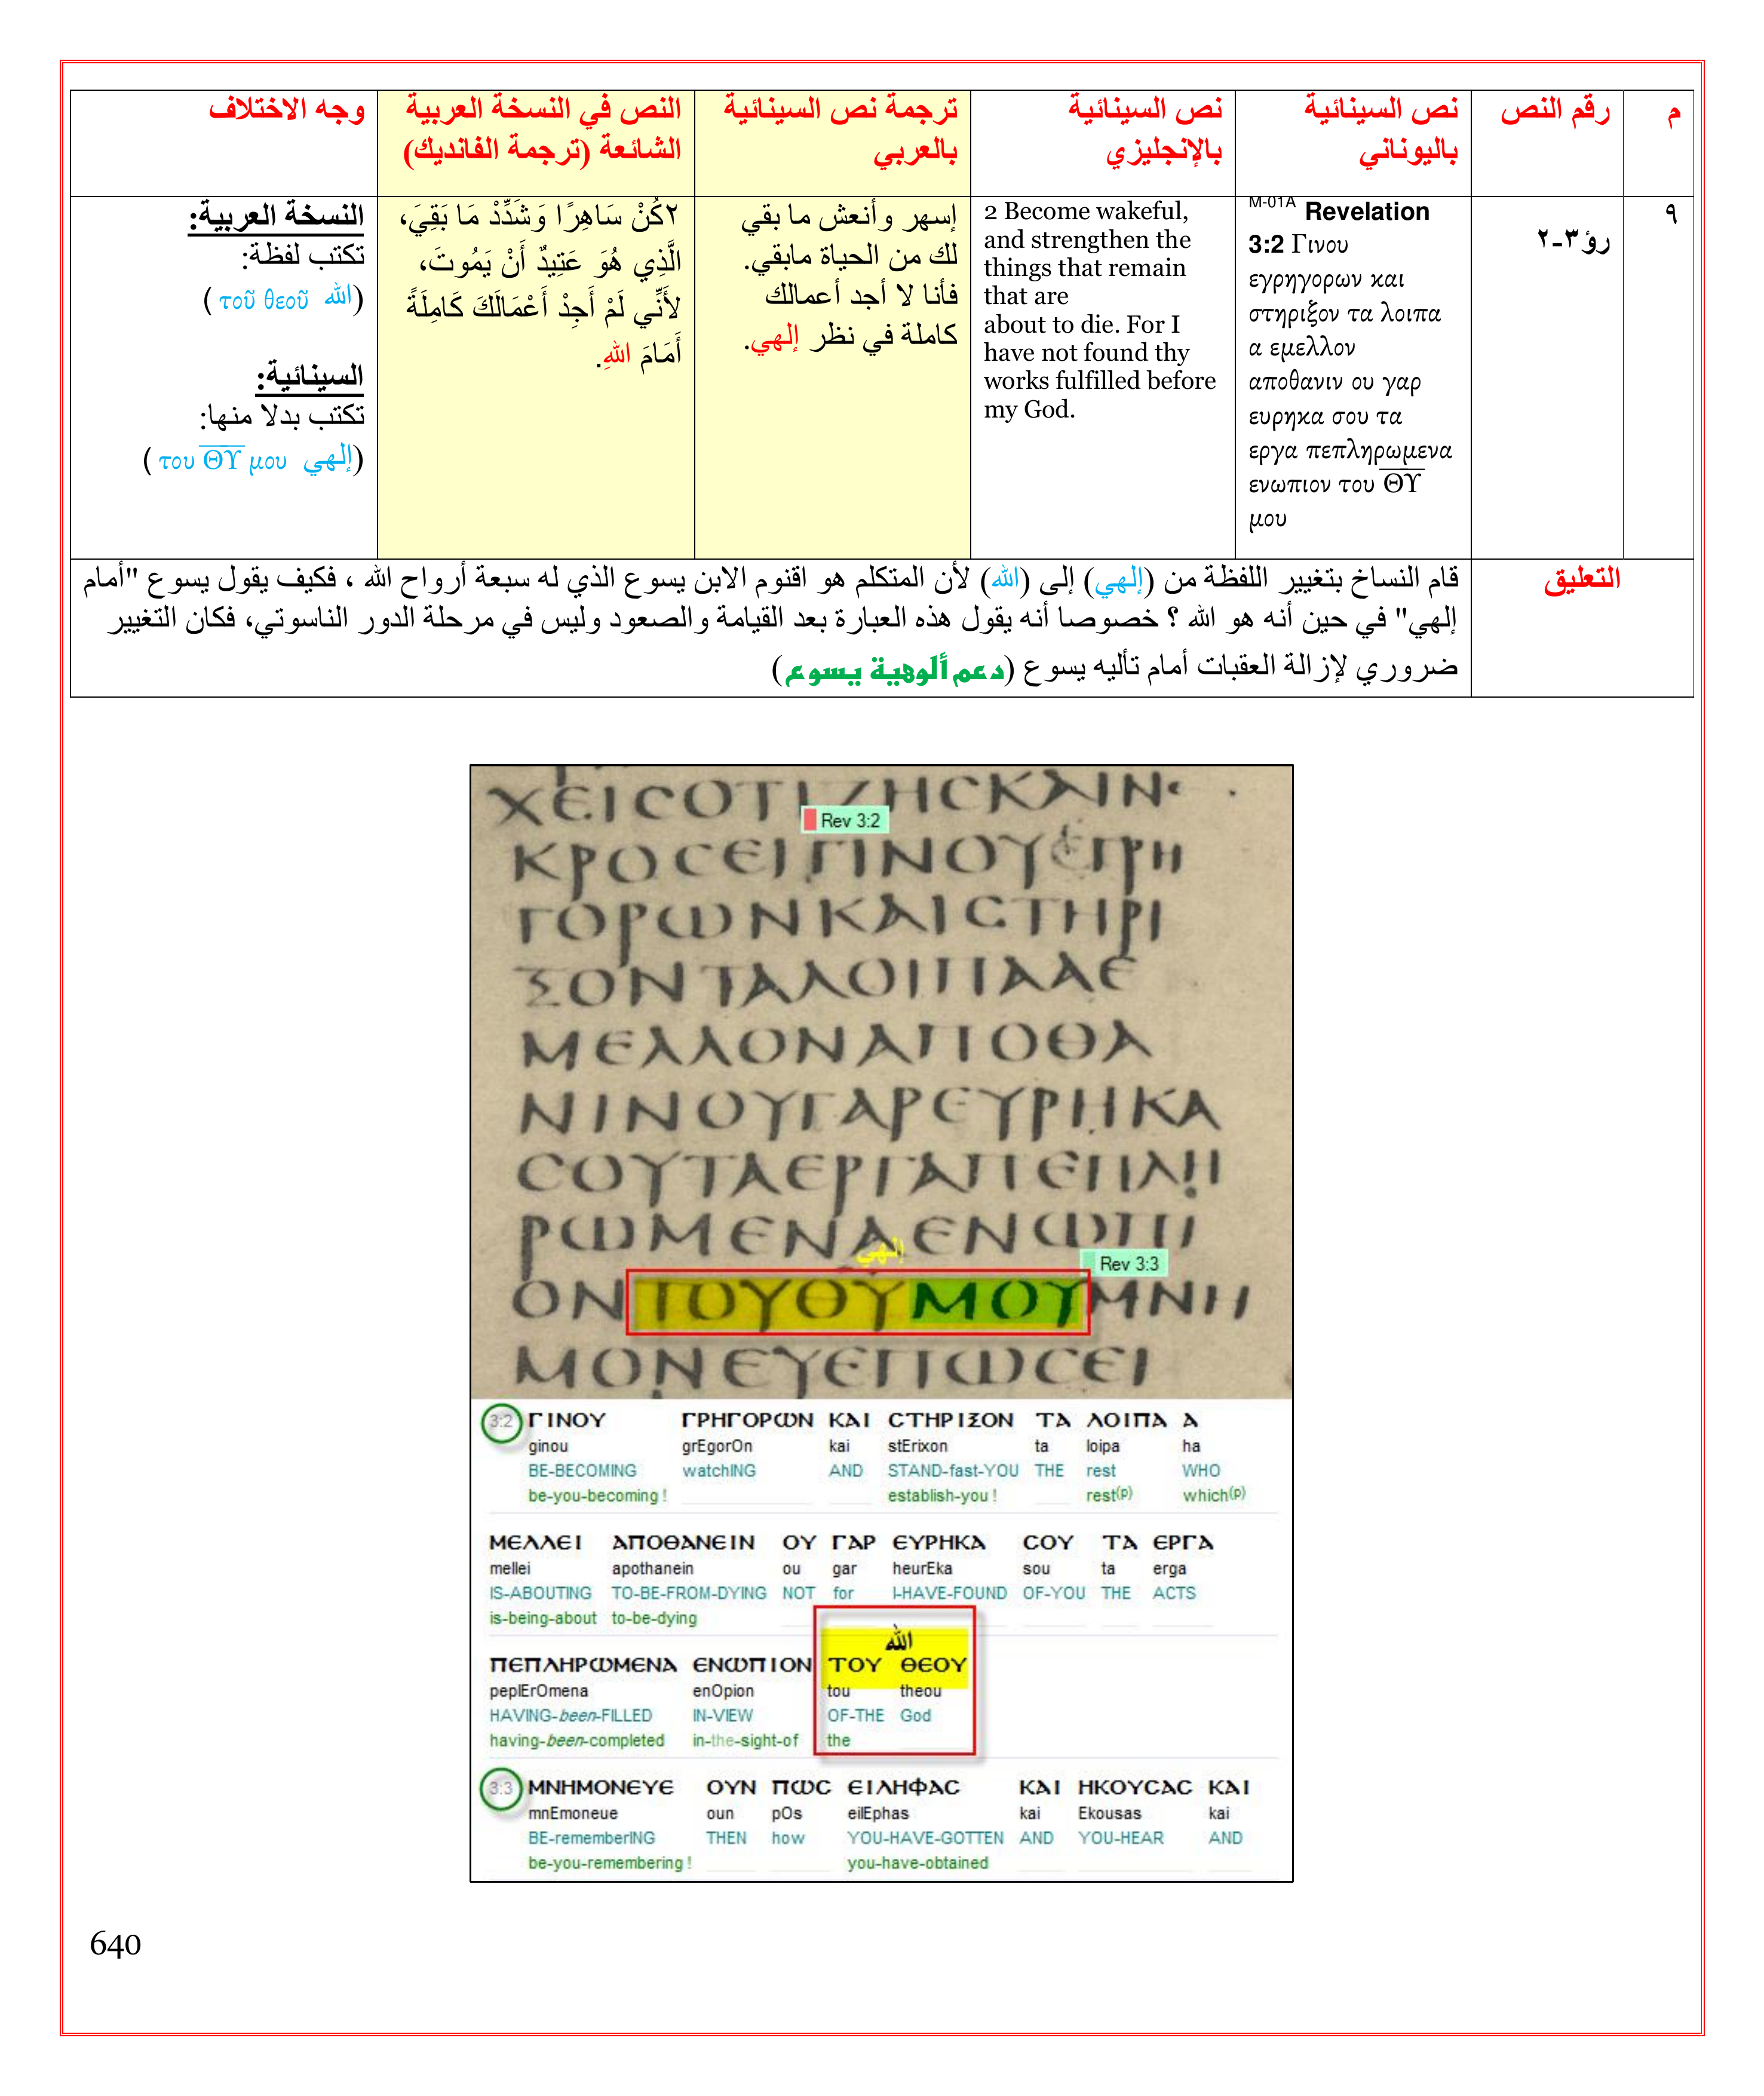 م
رقم النص
نص السينائية
باليوناني
نص السينائية
بالإنجليزي
ترجمة نص السينائية
بالعربي
النص في النسخة العربية
الشائعة (ترجمة الفانديك)
وجه الاختلاف
٩
رؤ٣-٢
M-01A Revelation
3:2 Γινου
εγρηγορων και
στηριξον τα λοιπα
α εμελλον
αποθανιν ου γαρ
ευρηκα σου τα
εργα πεπληρωμενα
ενωπιον του ΘΥ
μου
2 Become wakeful,
and strengthen the
things that remain
that are
about to die. For I
have not found thy
works fulfilled before
my God.
إسهر وأنعش ما بقي
لك من الحياة مابقي.
فأنا لا أجد أعمالك
كاملة في نظر إلهي.
٢كُنْ سَاهِرًا وَشَدِّدْ مَا بَقِيَ،
الَّذِي هُوَ عَتِيدٌ أَنْ يَمُوتَ،
لأَنِّي لَمْ أَجِدْ أَعْمَالَكَ كَامِلَةً
أَمَامَ اللهِ.
النسخة العربية:
تكتب لفظة:
(الله τοῦ θεοῦ )
السينائية:
تكتب بدلا منها:
(إلهي του ΘΥ μου )
التعليق
قام النساخ بتغيير اللفظة من (إلهي) إلى (الله) لأن المتكلم هو اقنوم الابن يسوع الذي له سبعة أرواح الله ، فكيف يقول يسوع "أمام
إلهي" في حين أنه هو الله ؟ خصوصا أنه يقول هذه العبارة بعد القيامة والصعود وليس في مرحلة الدور الناسوتي، فكان التغيير
ضروري لإزالة العقبات أمام تأليه يسوع (دعم ألوهية يسوع)
ΧΕΙϹΟΤΙΖΗϹΚΑΙΝ
Rev 3:2
ΚΡΟϹΕΙΓΙΝΟΥΕΓΡΗ
ΓΟΡΩΝΚΑΙϹΤΗΡΙ
ΞΟΝΤΑΛΟΙΠΑΑΕ
ΜΕΛΛΟΝΑΠΟΘΑ
ΝΙΝΟΥΓΑΡΕΥΡΗΚΑ
ϹΟΥΤΑΕΡΓΑΠΕΠΛΗ
ΡΩΜΕΝΑΕΝΩΠΙ
إلهي
Rev 3:3
ΟΝΤΟΥΘΥΜΟΥΜΝΗ
ΜΟΝΕΥΕΠΩϹΕΙ
3:2 ΓΙΝΟΥ ΓΡΗΓΟΡΩΝ ΚΑΙ ϹΤΗΡΙΞΟΝ ΤΑ ΛΟΙΠΑ Α
ginou grEgorOn kai stErixon ta loipa ha
BE-BECOMING watchING AND STAND-fast-YOU THE rest WHO
be-you-becoming ! establish-you ! rest(p) which(p)
ΜΕΛΛΕΙ ΑΠΟΘΑΝΕΙΝ ΟΥ ΓΑΡ ΕΥΡΗΚΑ ϹΟΥ ΤΑ ΕΡΓΑ
mellei apothanein ou gar heurEka sou ta erga
IS-ABOUTING TO-BE-FROM-DYING NOT for I-HAVE-FOUND OF-YOU THE ACTS
is-being-about to-be-dying
الله
ΠΕΠΛΗΡΩΜΕΝΑ ΕΝΩΠΙΟΝ ΤΟΥ ΘΕΟΥ
peplErOmena enOpion tou theou
HAVING-been-FILLED IN-VIEW OF-THE God
having-been-completed in-the-sight-of the
3:3 ΜΝΗΜΟΝΕΥΕ ΟΥΝ ΠΩϹ ΕΙΛΗΦΑϹ ΚΑΙ ΗΚΟΥϹΑϹ ΚΑΙ
mnEmoneue oun pOs eilEphas kai Ekousas kai
BE-rememberING THEN how YOU-HAVE-GOTTEN AND YOU-HEAR AND
be-you-remembering ! you-have-obtained
640